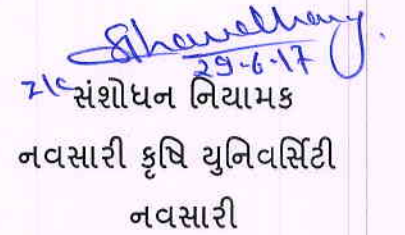 29-6-17
I/c સંશોધન નિયામક
નવસારી કૃષિ યુનિવર્સિટી
નવસારી